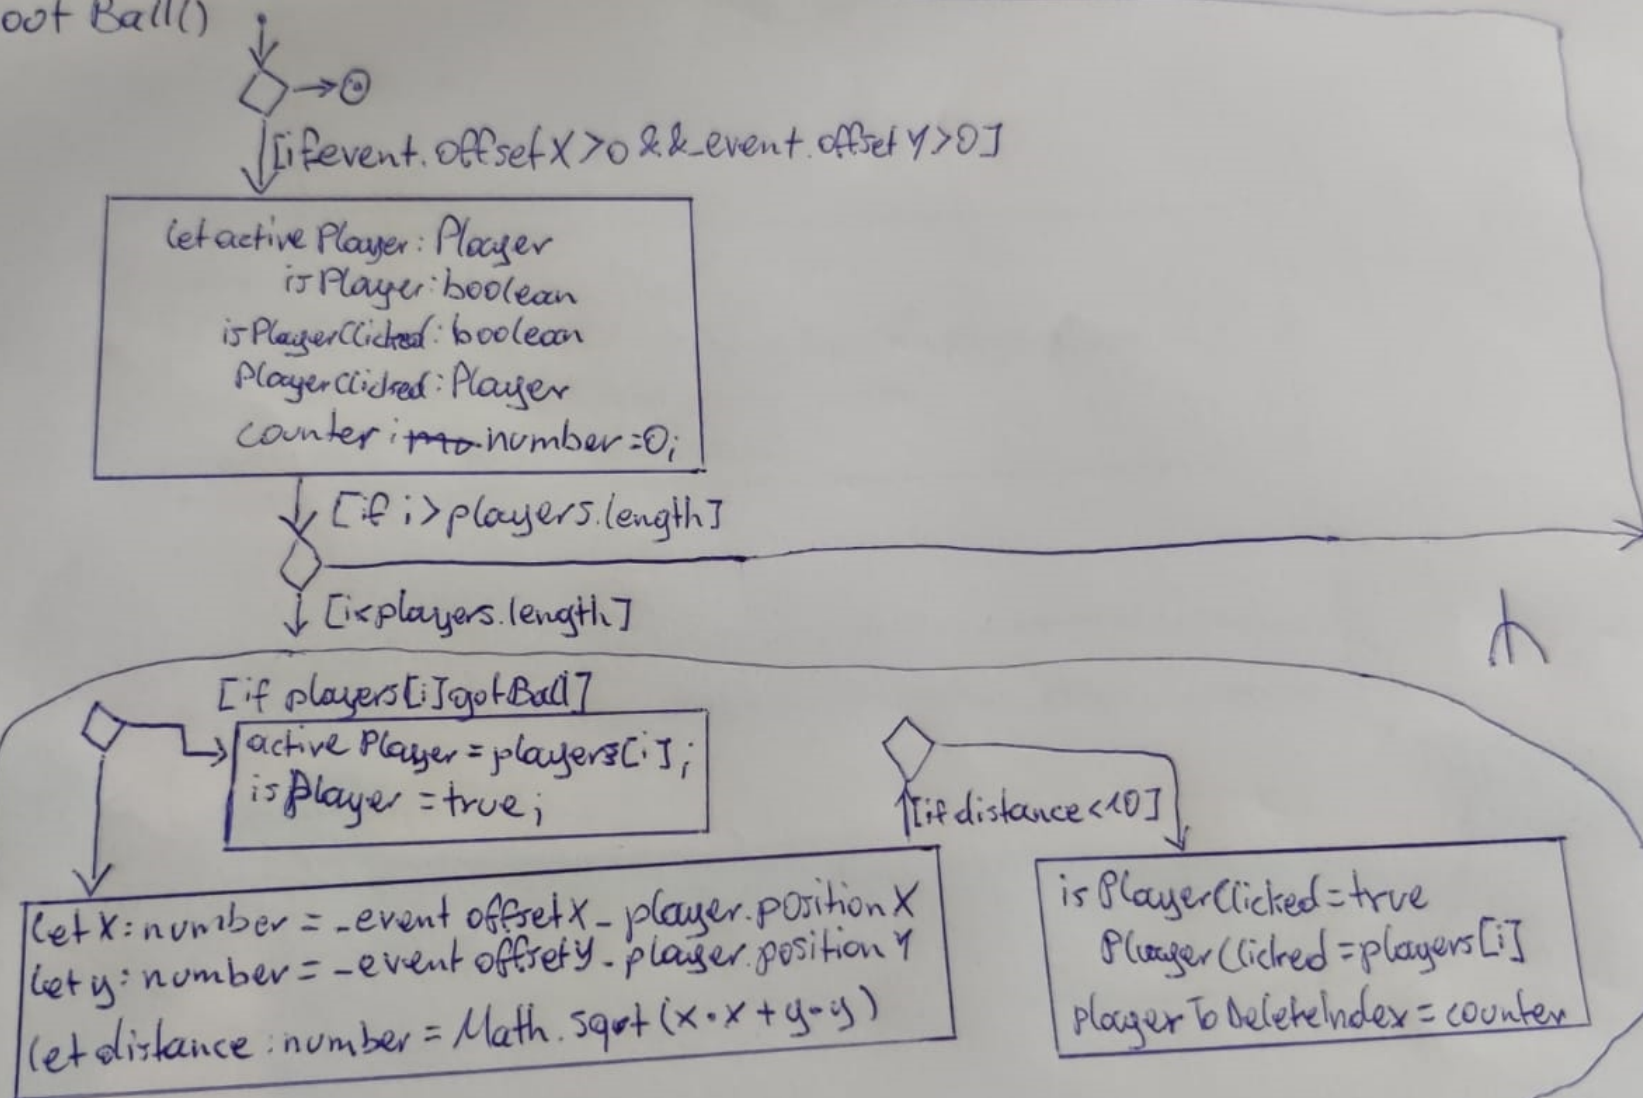 oot Ball()
[if event.offsetX>0 && _event.offsetY>0]
let activePlayer: Player
isPlayer: boolean
isPlayerClicked: boolean
PlayerClicked: Player
counter: number=0;
[if i>players.length]
[i<players.length]
[if players[i]gotBall]
activePlayer=players[i];
isPlayer=true;
[if distance<10]
let X:number= _event offsetX - player.positionX
let y:number= _event offsetY - player.positionY
let distance:number=Math.sqrt(x·x+y·y)
isPlayerClicked=true
PlayerClicked=players[i]
playerToDeleteIndex=counter